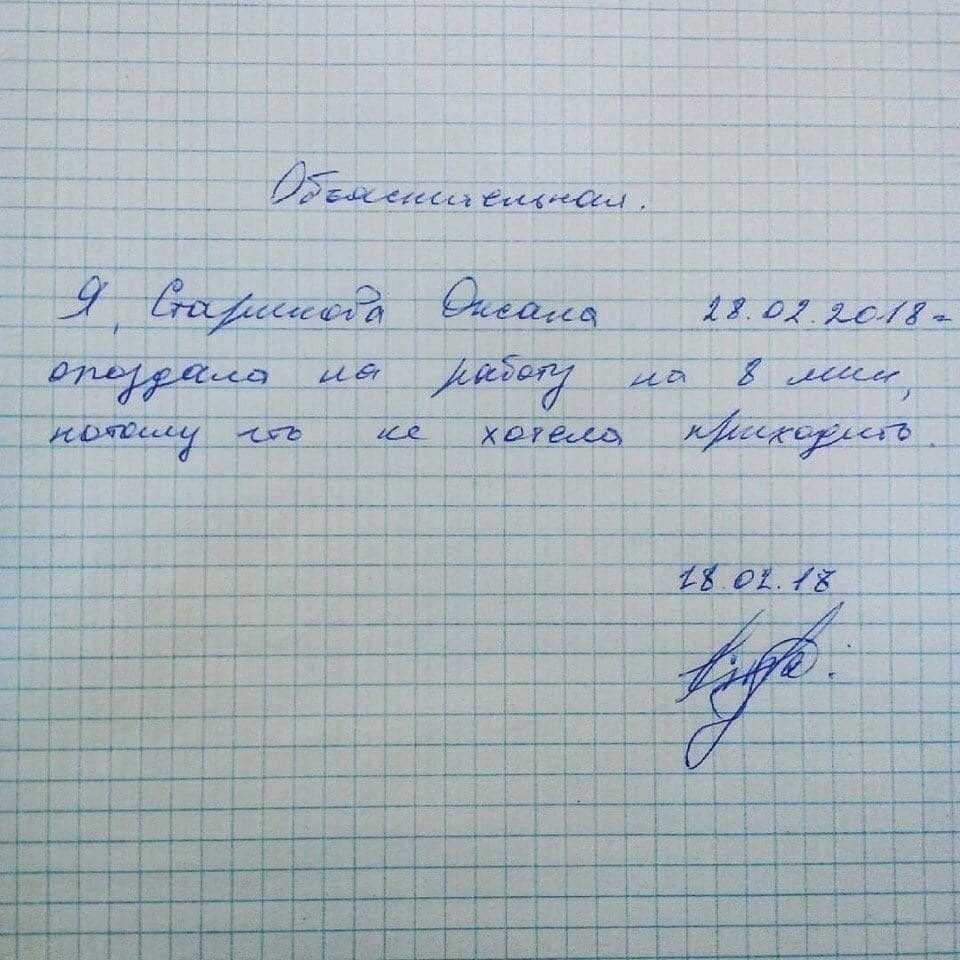 Объяснительная.
Я, Старикова Оксана 28.02.2018г
опоздала на работу на 8 мин,
потому что не хотела приходить.
28.02.18